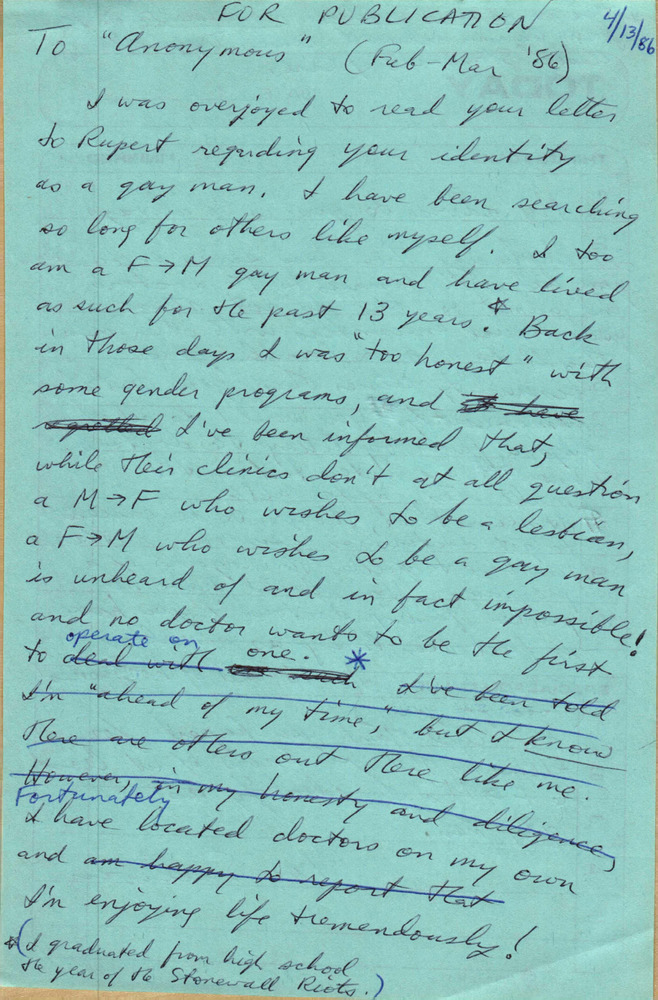 FOR PUBLICATION
4/13/86
To "Anonymous" (Feb-Mar '86)
I was overjoyed to read your letter
to Rupert regarding your identity
as a gay man. I have been searching
so long for others like myself. I too
am a F→M gay man and have lived
as such for the past 13 years.* Back
in those days I was "too honest" with
some gender programs, and it have
I've been informed that,
while their clinics don't at all question
a M→F who wishes to be a lesbian,
a F→M who wishes to be a gay man
is unheard of and in fact impossible!
and no doctor wants to be the first
operate on
to deal with one. * I've been told
I'm "ahead of my time," but I know
there are others out there like me.
However, in my honesty and diligence,
Fortunately
I have located doctors on my own
and am happy to report that
I'm enjoying life tremendously!
*(I graduated from high school
the year of the Stonewall Riots.)